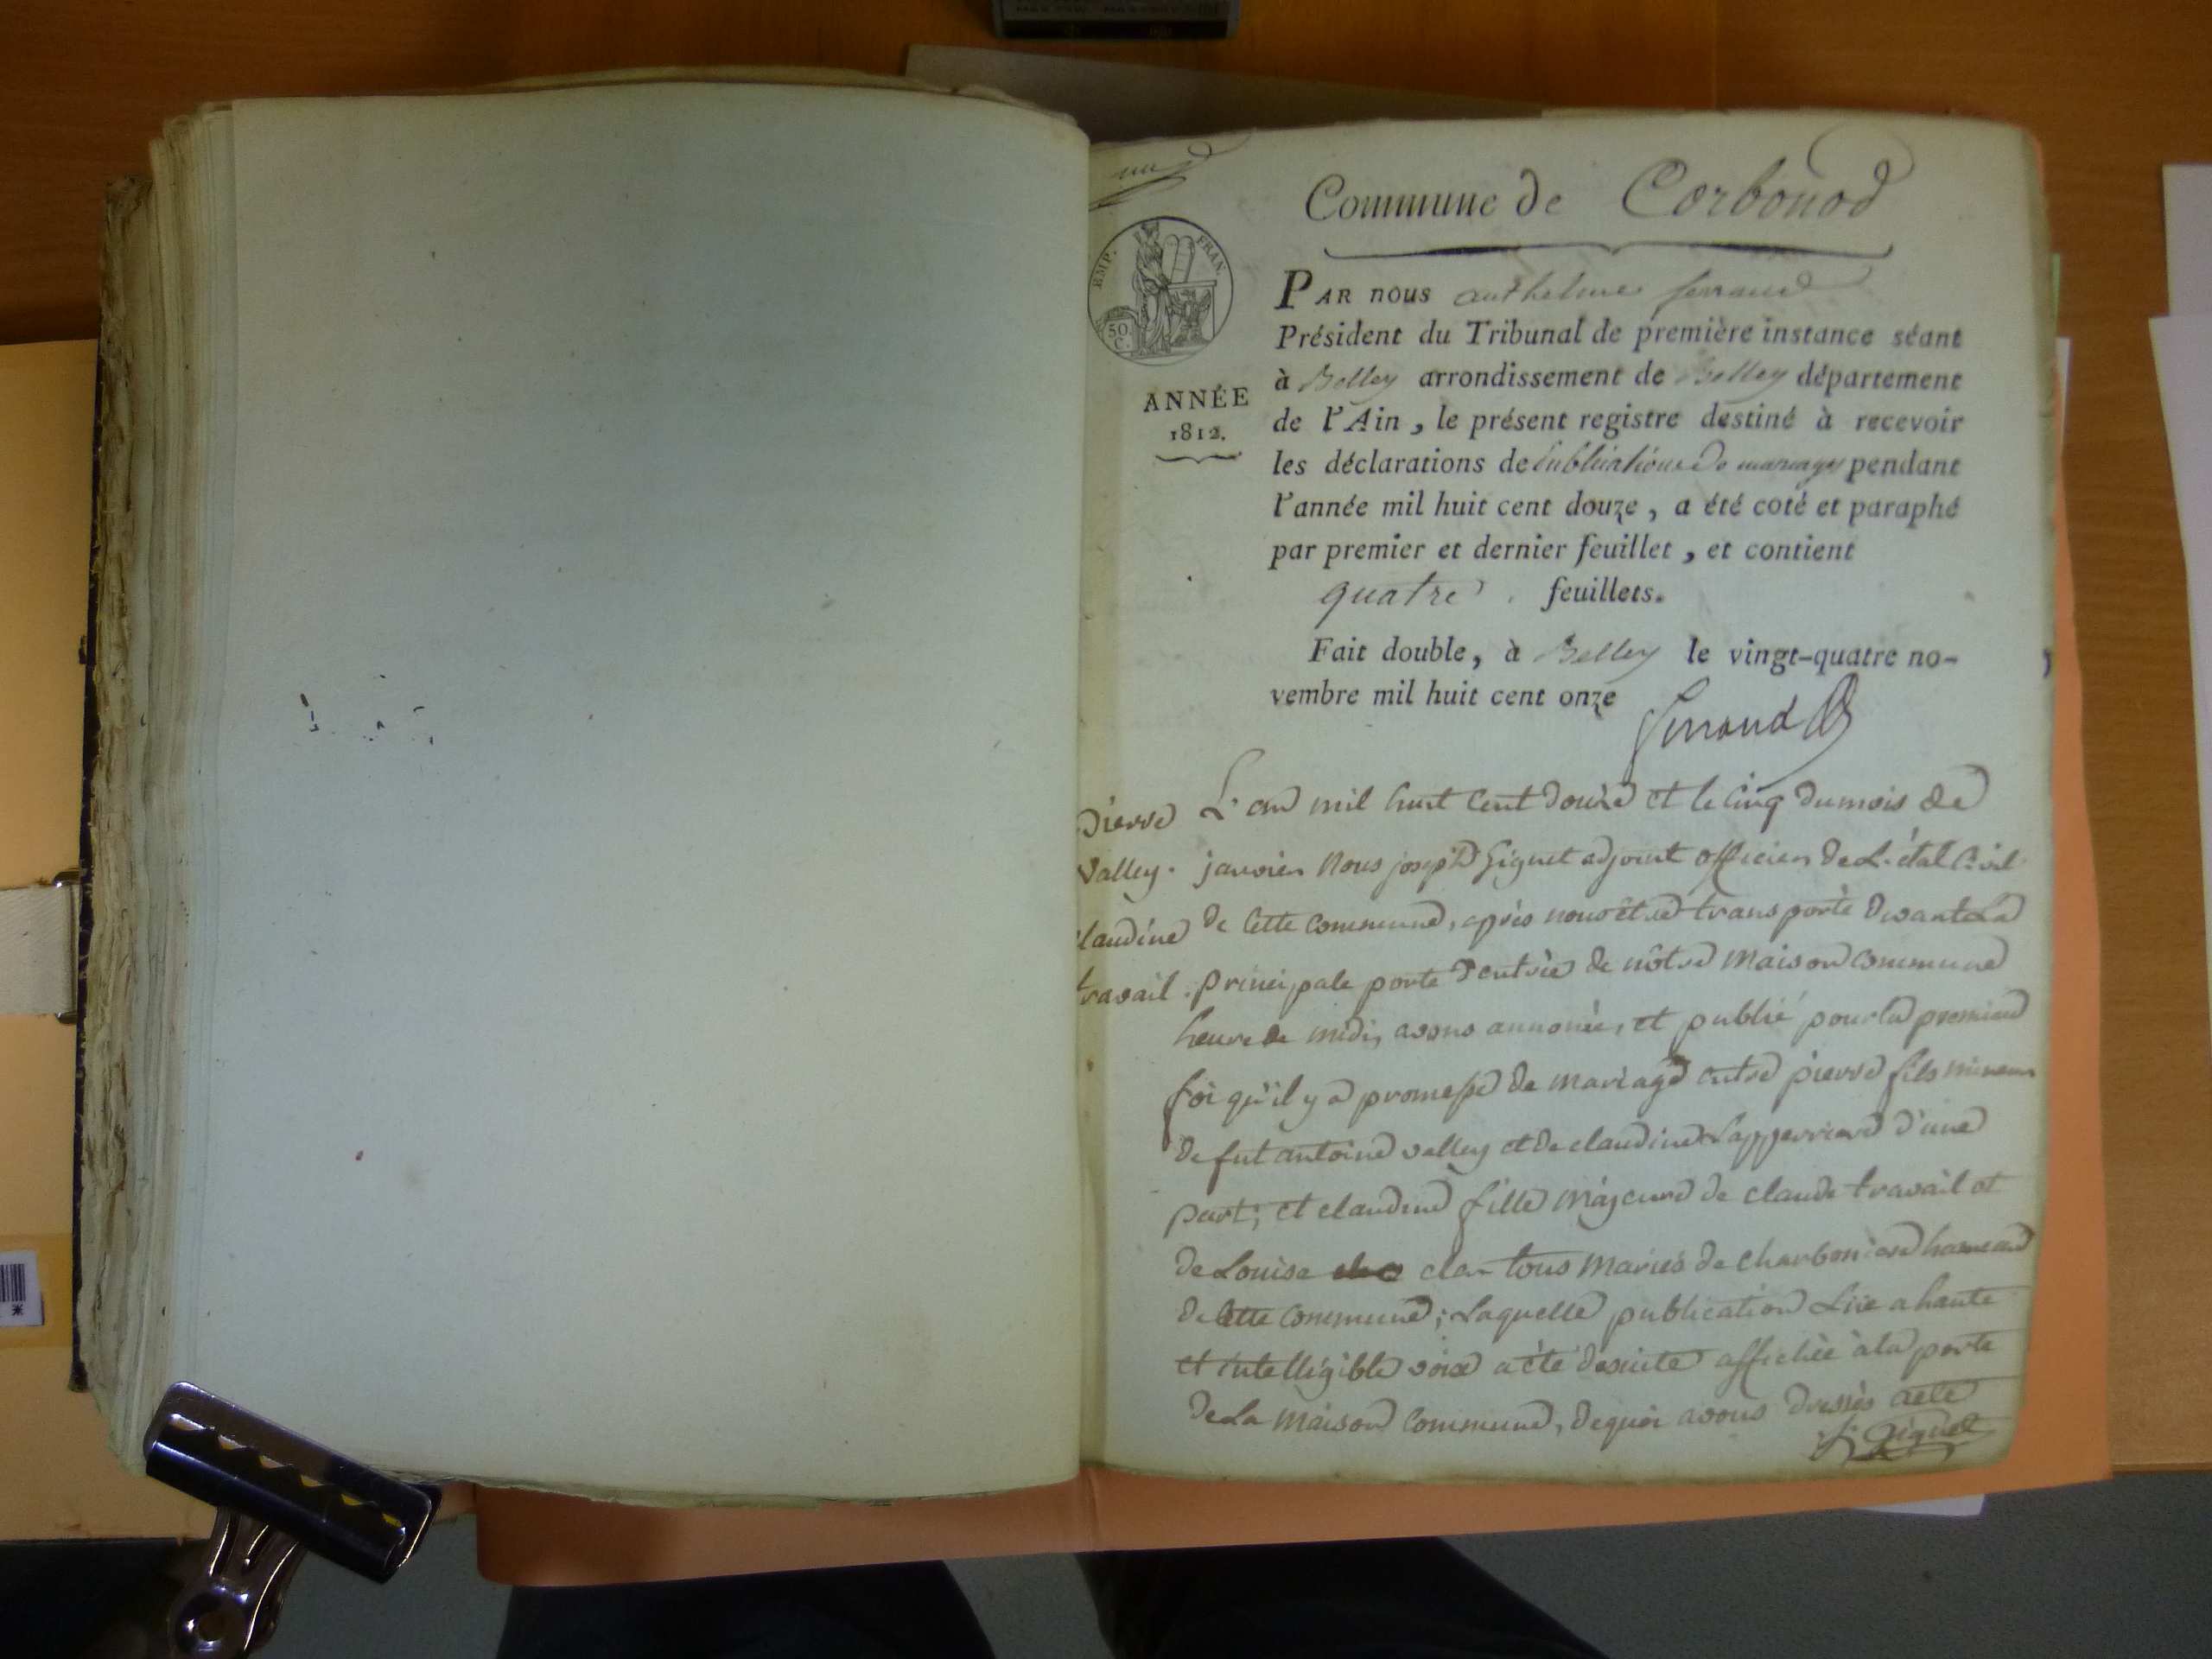 Commune de Corbonod
EMP. FRAN.
50
C.
ANNÉE
1812.
PAR nous anthelme ferrand
Président du Tribunal de première instance séant
à Belley arrondissement de Belley département
de l'Ain, le présent registre destiné à recevoir
les déclarations de publications de mariages pendant
l'année mil huit cent douze, a été coté et paraphé
par premier et dernier feuillet, et contient
quatre feuillets.
Fait double, à Belley le vingt-quatre no-
vembre mil huit cent onze
ferrand
pierre
valley.
claudine
travail.
L'an mil huit cent douze et le cinq du mois de
janvier Nous joseph Giguet adjoint officier de L'état Civil
de cette commune, après nous être transporté devant La
principale porte d'entrée de nôtre maison commune
heure de midi, avons annoncé, et publié pour la premiere
foi qu'il y a promesse de mariage entre pierre fils mineur
de fut antoine valley et de claudine Lapperriere d'une
part; et claudine fille majeure de claude travail et
de Louise clar tous mariés de charboniere hameau
de cette commune; Laquelle publication Lüe a haute
et intelligible voix a été desuite affichée à la porte
de La maison commune, dequoi avons dressés acte
Giguet